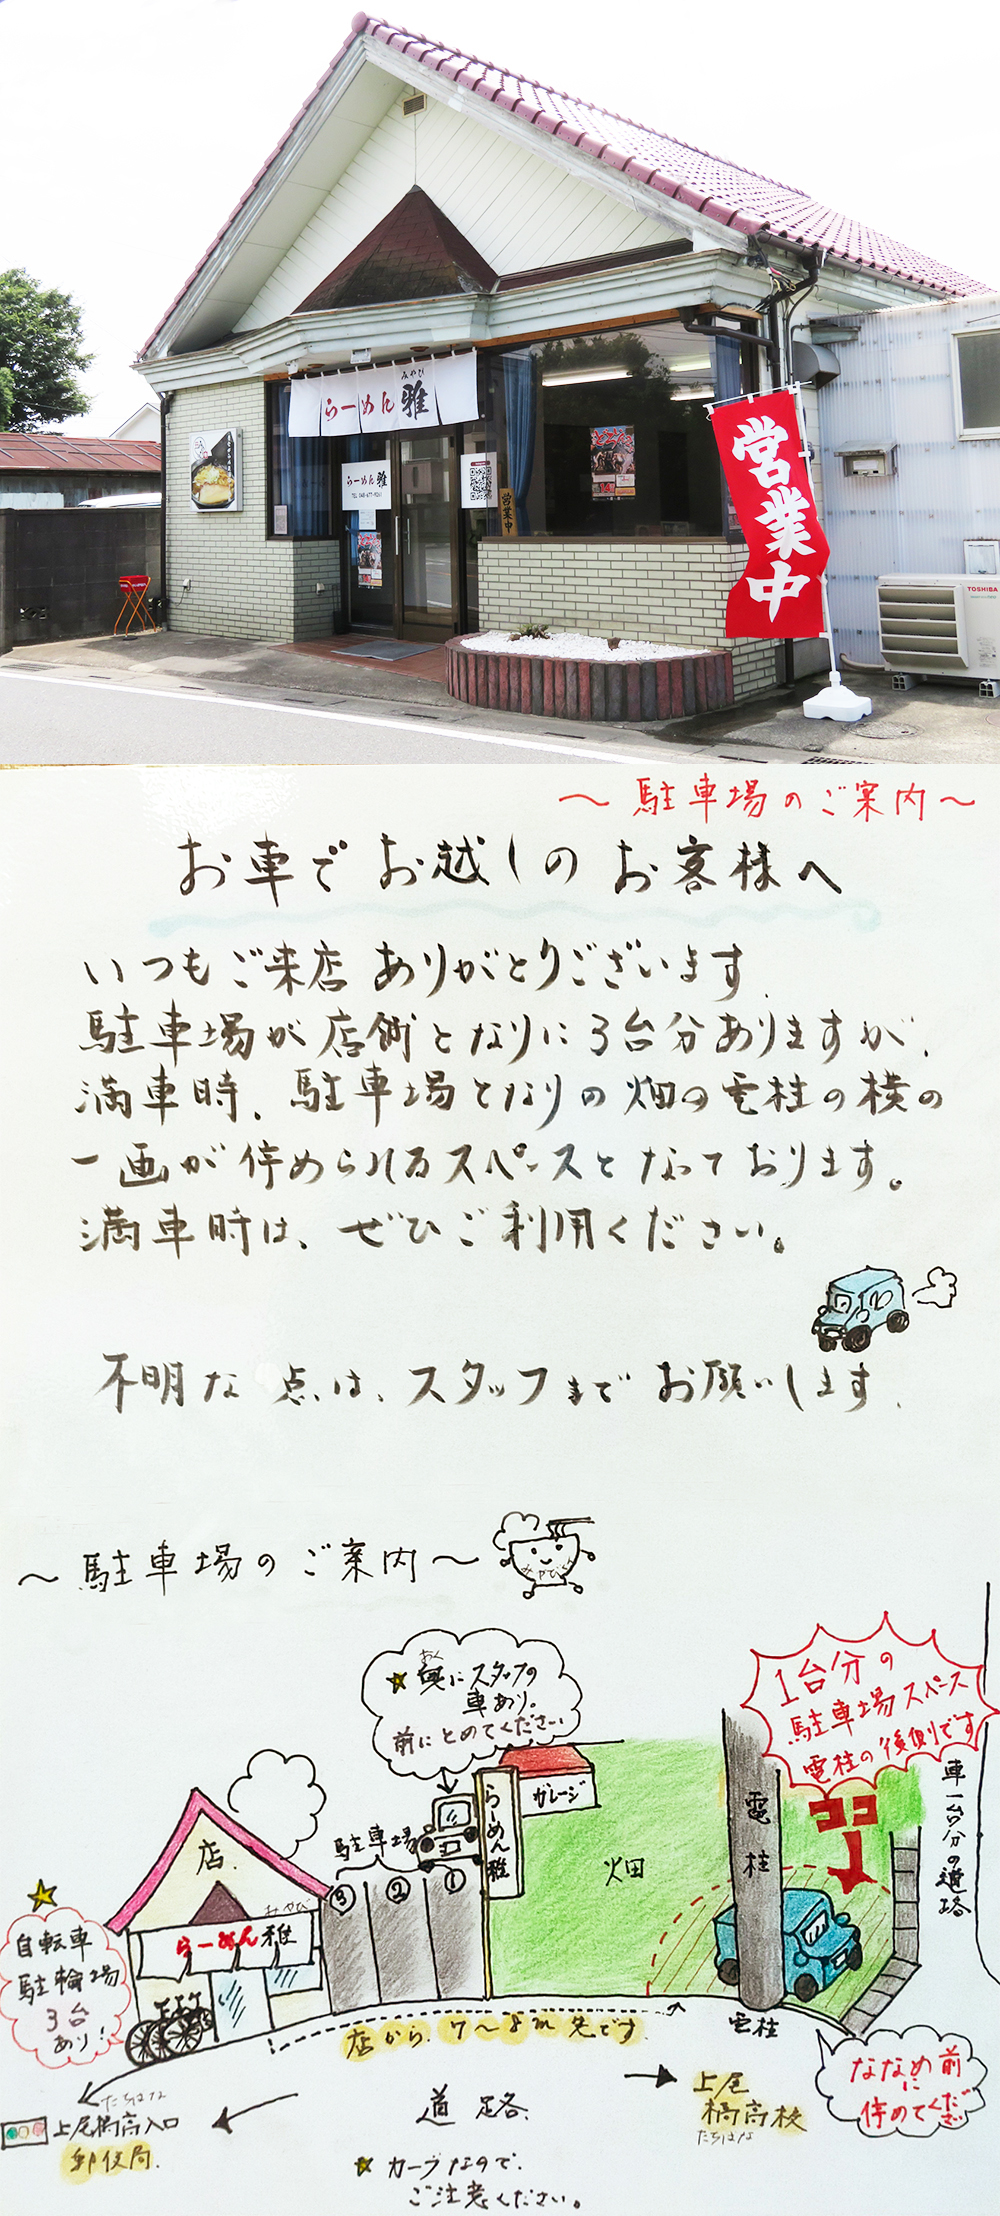 みやび
らーめん 雅
らーめん 雅
TEL 048-677-9261
営業中
営業中
TOSHIBA
～駐車場のご案内～
お車でお越しのお客様へ
いつもご来店ありがとうございます.
駐車場が店側となりに3台分ありますが、
満車時、駐車場となりの畑の電柱の横の
一画が停められるスペースとなっております。
満車時は、ぜひご利用ください。
不明な点は、スタッフまでお願いします.
～駐車場のご案内～
みやび
おく
奥にスタッフの
車あり。
前にとめてください
1台分の
駐車場スペース
電柱の後側です
ココ
車一台分の道路
ガレージ
らーめん雅
駐車場
③ ② ①
畑
電柱
店
みやび
らーめん 雅
自転車
駐輪場
3台
あり!
店から、7～8m先です
電柱
ななめ前
に
停めてくださ
たちばな
上尾橘高入口
郵便局.
道路
上尾
橘高校
たちばな
カーブなので、
ご注意ください。